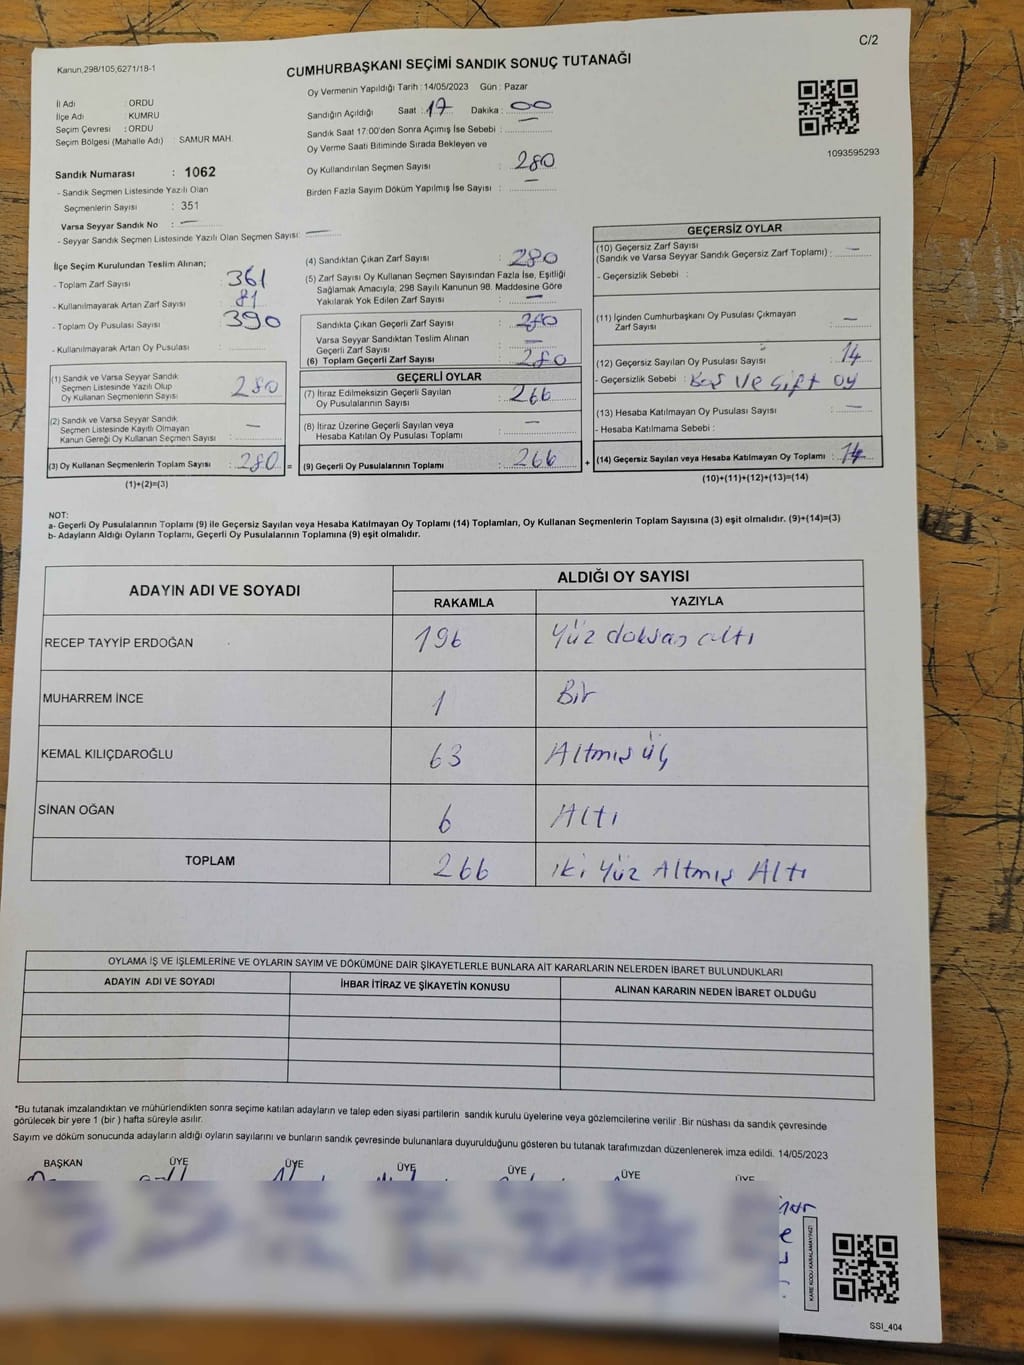 C/2
Kanun,298/105;6271/18-1
CUMHURBAŞKANI SEÇİMİ SANDIK SONUÇ TUTANAĞI
Oy Vermenin Yapıldığı Tarih : 14/05/2023 Gün : Pazar
İl Adı : ORDU
İlçe Adı : KUMRU
Seçim Çevresi : ORDU
Seçim Bölgesi (Mahalle Adı) : SAMUR MAH.
Sandığın Açıldığı Saat : 17 Dakika : 00
Sandık Saat 17:00'den Sonra Açımış İse Sebebi :
Oy Verme Saati Bitiminde Sırada Bekleyen ve
Oy Kullandırılan Seçmen Sayısı : 280
Birden Fazla Sayım Döküm Yapılmış İse Sayısı : —
1093595293
Sandık Numarası : 1062
- Sandık Seçmen Listesinde Yazılı Olan
Seçmenlerin Sayısı : 351
Varsa Seyyar Sandık No : —
- Seyyar Sandık Seçmen Listesinde Yazılı Olan Seçmen Sayısı: —
İlçe Seçim Kurulundan Teslim Alınan;
- Toplam Zarf Sayısı : 361
- Kullanılmayarak Artan Zarf Sayısı : 81
- Toplam Oy Pusulası Sayısı : 390
- Kullanılmayarak Artan Oy Pusulası :
(1) Sandık ve Varsa Seyyar Sandık
Seçmen Listesinde Yazılı Olup
Oy Kullanan Seçmenlerin Sayısı : 280
(2) Sandık ve Varsa Seyyar Sandık
Seçmen Listesinde Kayıtlı Olmayan
Kanun Gereği Oy Kullanan Seçmen Sayısı : —
(3) Oy Kullanan Seçmenlerin Toplam Sayısı : 280 =
(1)+(2)=(3)
(4) Sandıktan Çıkan Zarf Sayısı : 280
(5) Zarf Sayısı Oy Kullanan Seçmen Sayısından Fazla İse, Eşitliği
Sağlamak Amacıyla, 298 Sayılı Kanunun 98. Maddesine Göre
Yakılarak Yok Edilen Zarf Sayısı : —
Sandıkta Çıkan Geçerli Zarf Sayısı : 280
Varsa Seyyar Sandıktan Teslim Alınan
Geçerli Zarf Sayısı : —
(6) Toplam Geçerli Zarf Sayısı : 280
GEÇERLİ OYLAR
(7) İtiraz Edilmeksizin Geçerli Sayılan
Oy Pusulalarının Sayısı : 266
(8) İtiraz Üzerine Geçerli Sayılan veya
Hesaba Katılan Oy Pusulası Toplamı : —
(9) Geçerli Oy Pusulalarının Toplamı : 266 +
GEÇERSİZ OYLAR
(10) Geçersiz Zarf Sayısı
(Sandık ve Varsa Seyyar Sandık Geçersiz Zarf Toplamı) : —
- Geçersizlik Sebebi :
(11) İçinden Cumhurbaşkanı Oy Pusulası Çıkmayan
Zarf Sayısı : —
(12) Geçersiz Sayılan Oy Pusulası Sayısı : 14
- Geçersizlik Sebebi : Boş ve Çift oy
(13) Hesaba Katılmayan Oy Pusulası Sayısı : —
- Hesaba Katılmama Sebebi :
(14) Geçersiz Sayılan veya Hesaba Katılmayan Oy Toplamı : 14
(10)+(11)+(12)+(13)=(14)
NOT:
a- Geçerli Oy Pusulalarının Toplamı (9) ile Geçersiz Sayılan veya Hesaba Katılmayan Oy Toplamı (14) Toplamları, Oy Kullanan Seçmenlerin Toplam Sayısına (3) eşit olmalıdır. (9)+(14)=(3)
b- Adayların Aldığı Oyların Toplamı, Geçerli Oy Pusulalarının Toplamına (9) eşit olmalıdır.
ADAYIN ADI VE SOYADI ALDIĞI OY SAYISI
RAKAMLA YAZIYLA
RECEP TAYYİP ERDOĞAN 196 Yüz doksan altı
MUHARREM İNCE 1 Bir
KEMAL KILIÇDAROĞLU 63 Altmış üç
SİNAN OĞAN 6 Altı
TOPLAM 266 iki Yüz Altmış Altı
OYLAMA İŞ VE İŞLEMLERİNE VE OYLARIN SAYIM VE DÖKÜMÜNE DAİR ŞİKAYETLERLE BUNLARA AİT KARARLARIN NELERDEN İBARET BULUNDUKLARI
ADAYIN ADI VE SOYADI İHBAR İTİRAZ VE ŞİKAYETİN KONUSU ALINAN KARARIN NEDEN İBARET OLDUĞU
*Bu tutanak imzalandıktan ve mühürlendikten sonra seçime katılan adayların ve talep eden siyasi partilerin sandık kurulu üyelerine veya gözlemcilerine verilir .Bir nüshası da sandık çevresinde
görülecek bir yere 1 (bir ) hafta süreyle asılır.
Sayım ve döküm sonucunda adayların aldığı oyların sayılarını ve bunların sandık çevresinde bulunanlara duyurulduğunu gösteren bu tutanak tarafımızdan düzenlenerek imza edildi. 14/05/2023
BAŞKAN ÜYE ÜYE ÜYE ÜYE ÜYE ÜYE
KARE KODU KARALAMAYINIZ!
SSI_404